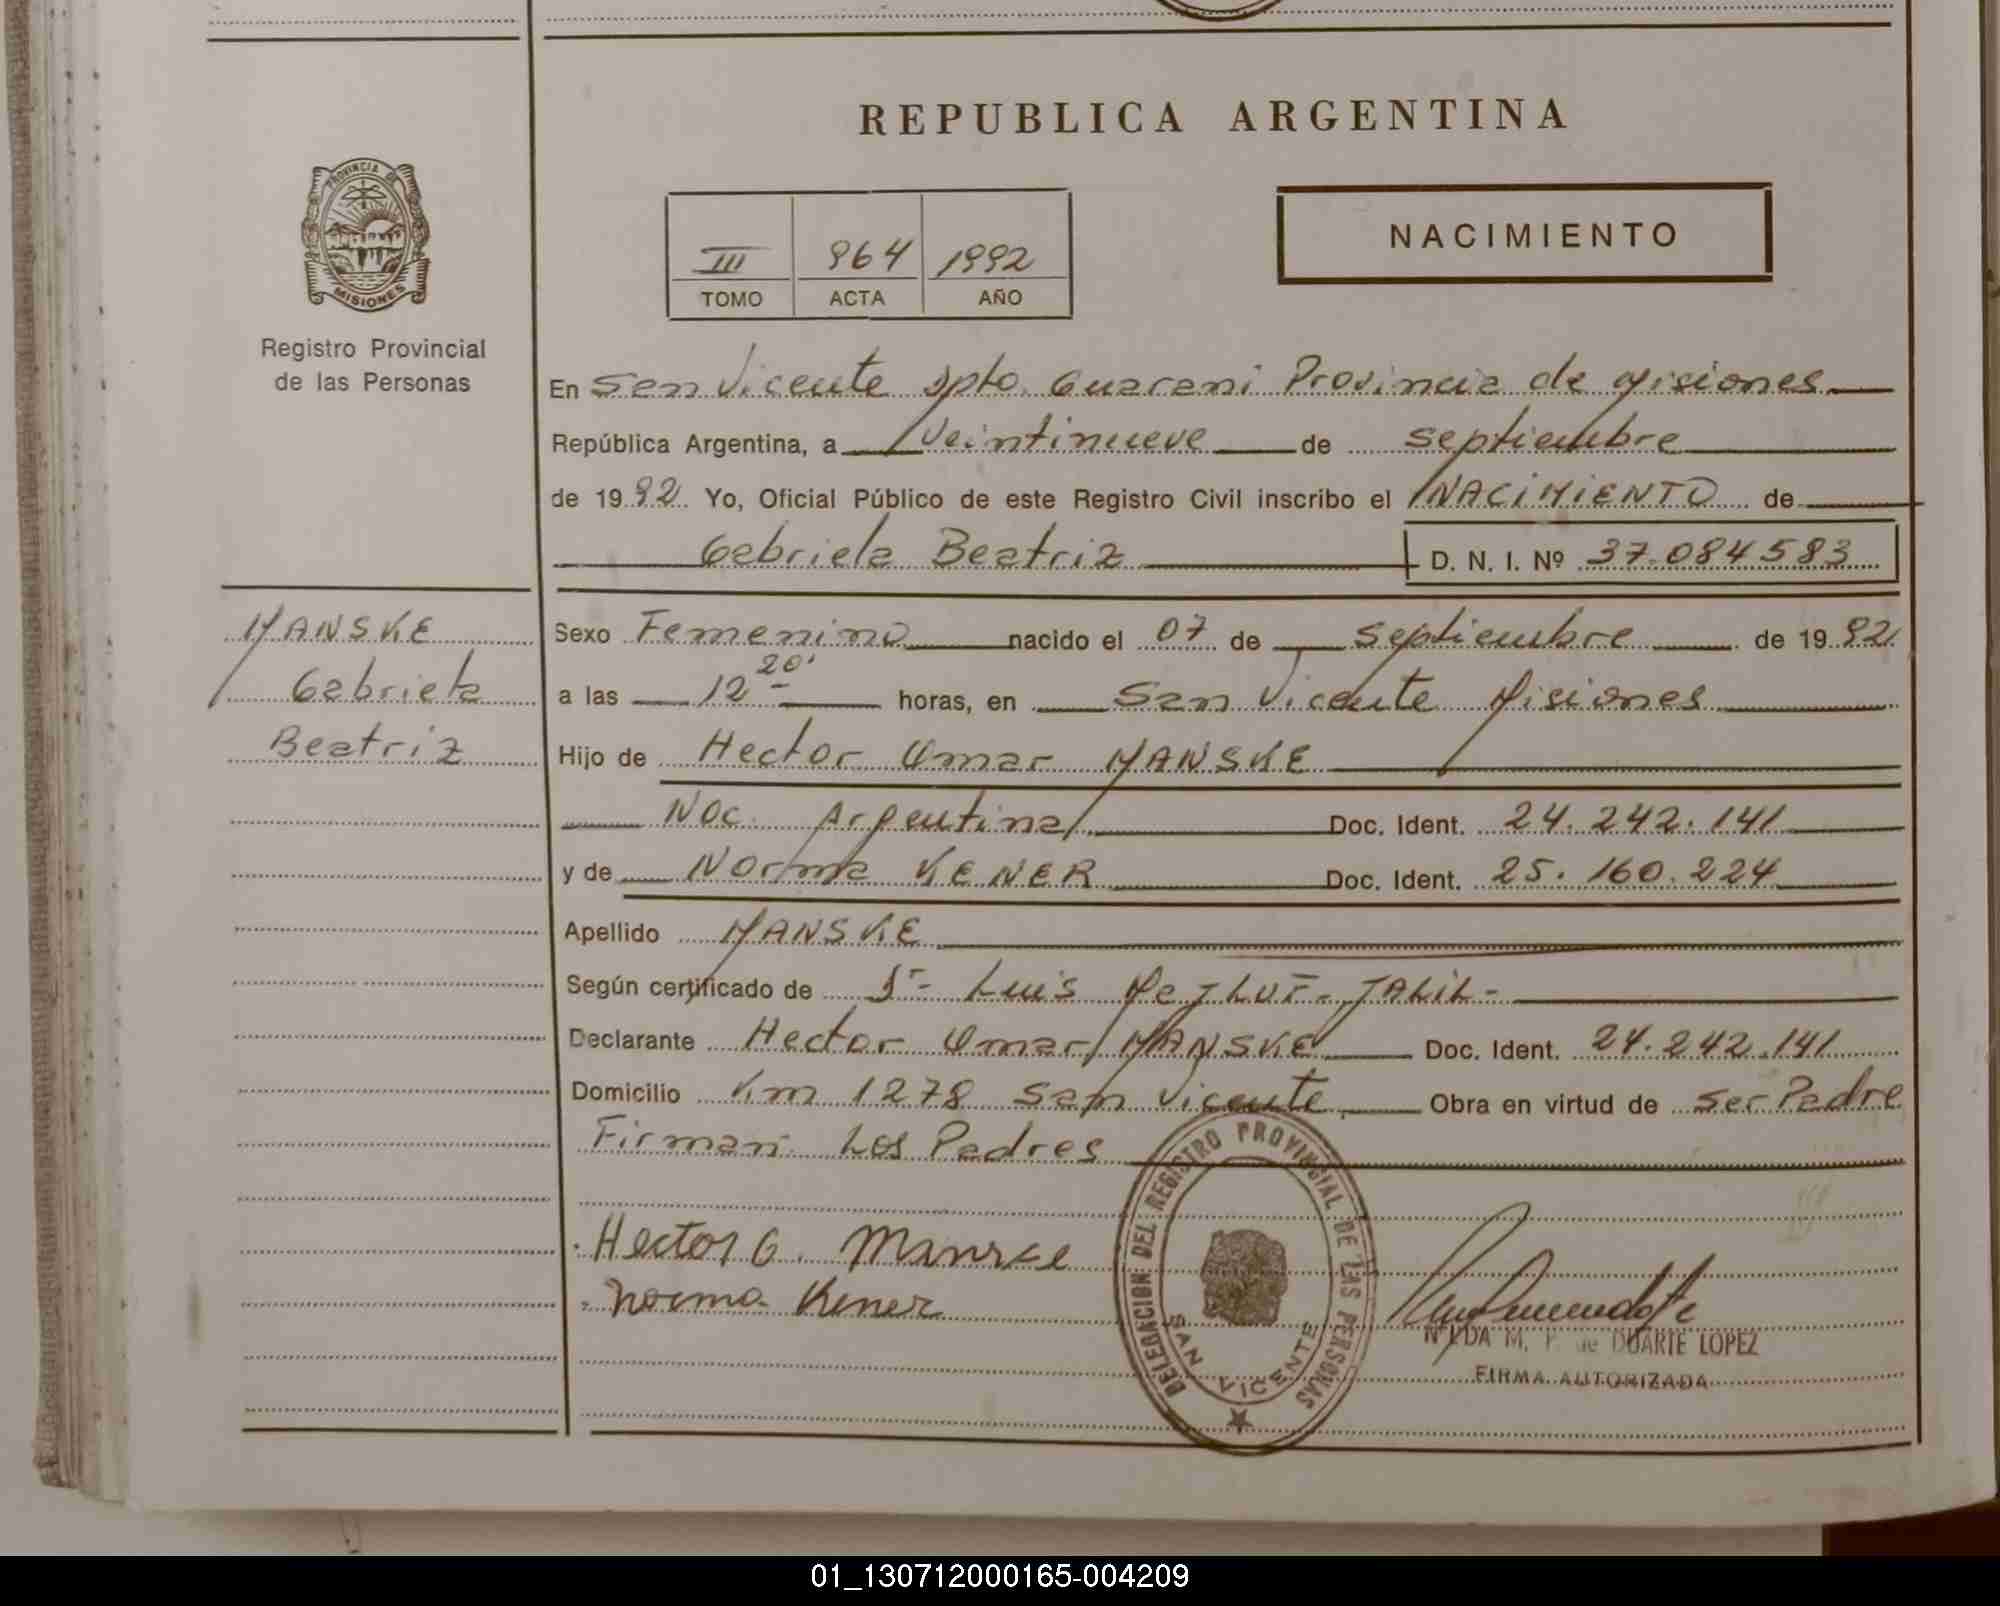 REPUBLICA ARGENTINA
PROVINCIA DE
MISIONES
Registro Provincial
de las Personas
III 964 1992
TOMO ACTA AÑO
NACIMIENTO
En San Vicente Dpto. Guarani Provincia de Misiones
República Argentina, a Veintinueve de septiembre
de 1992 Yo, Oficial Público de este Registro Civil inscribo el NACIMIENTO de
Gabriela Beatriz D. N. I. Nº 37.084583
MANSKE
Gabriela
Beatriz
Sexo Femenino nacido el 07 de septiembre de 1992
a las 12 20' horas, en San Vicente Misiones
Hijo de Hector Omar MANSKE
Nac. Argentina Doc. Ident. 24.242.141
y de Norma KENER Doc. Ident. 25.160.224
Apellido MANSKE
Según certificado de Dr- Luis JALIL-
Declarante Hector Omar MANSKE Doc. Ident. 24.242.141
Domicilio Km 1278 San Vicente Obra en virtud de Ser Padre
Firman Los Padres
DELEGACION DEL REGISTRO PROVINCIAL DE LAS PERSONAS
SAN VICENTE
Hector O. Manske
Norma Kener
DUARTE LOPEZ
FIRMA AUTORIZADA
01_130712000165-004209